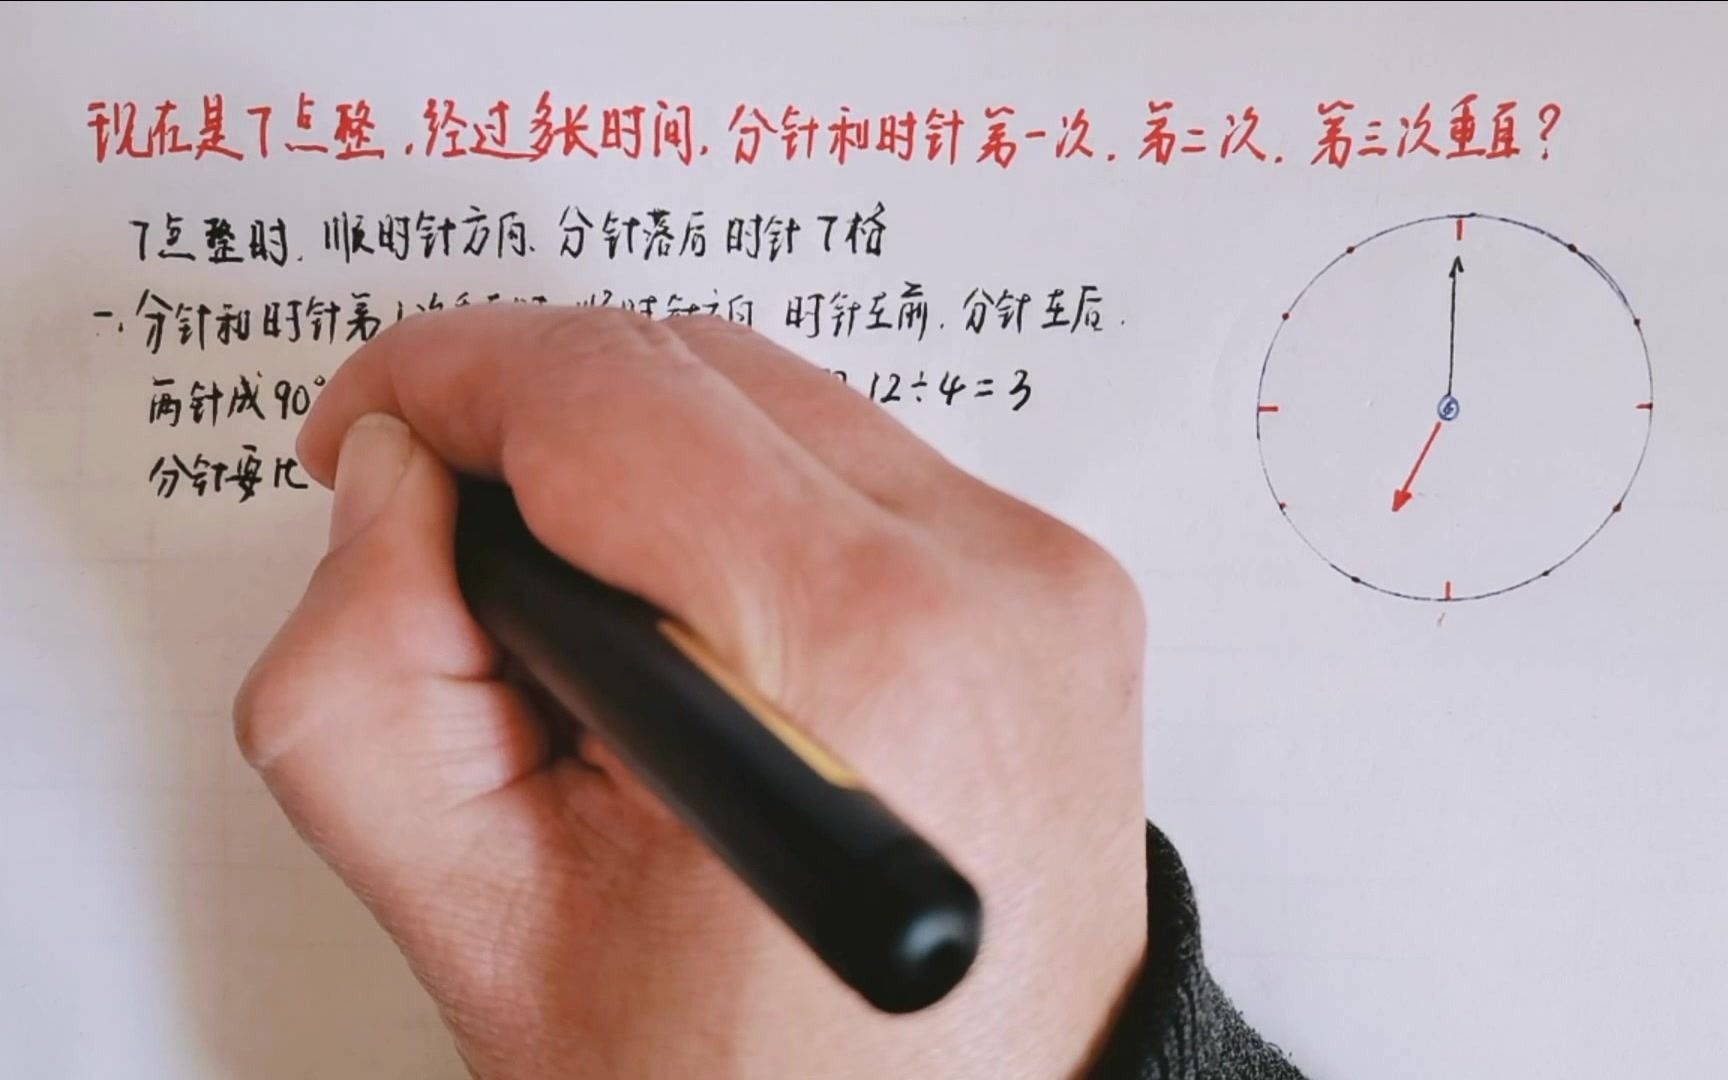 现在是7点整,经过多长时间,分针和时针第一次,第二次,第三次垂直?
7点整时,顺时针方向,分针落后时针7格
一,分针和时针第1次 时针方向 时针在前,分针在后.
两针成90° 12÷4=3
分针要比